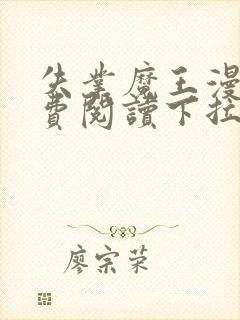 失業魔王漫
費閱讀下拉
廖宗荣